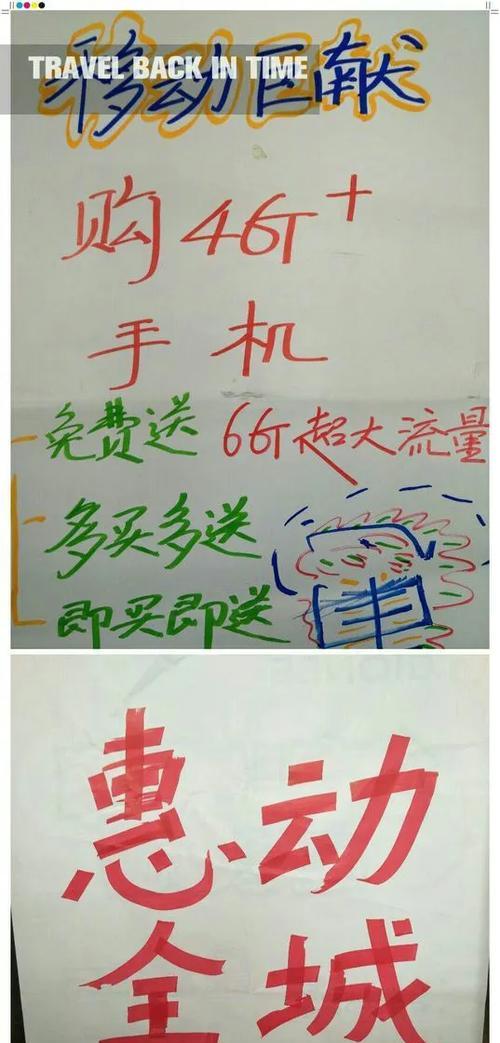 TRAVEL BACK IN TIME
移动巨献
购4G+
手机
免费送 6G超大流量
多买多送
即买即送
惠动
全城